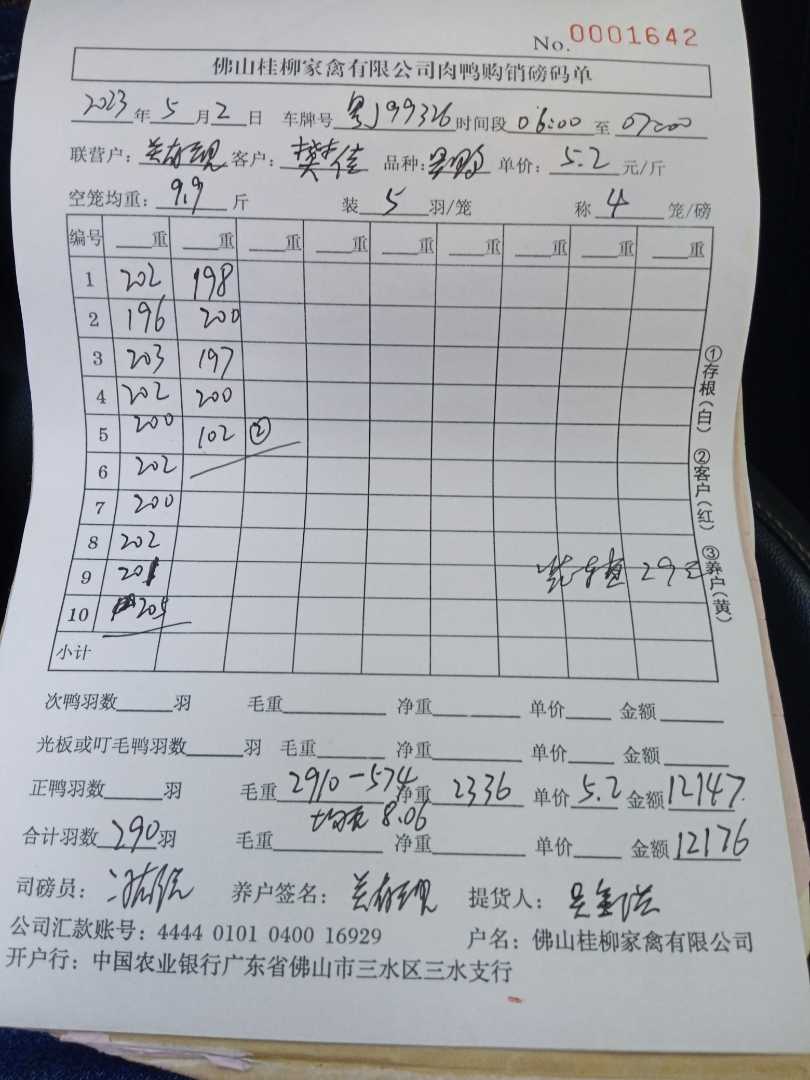 No. 0001642
佛山桂柳家禽有限公司肉鸭购销磅码单
2023年5月2日 车牌号 粤J99326 时间段 06:00 至 07:00
联营户: 客户: 樊佳 品种: 单价: 5.2 元/斤
空笼均重: 9.9 斤 装 5 羽/笼 称 4 笼/磅
编号 重 重 重 重 重 重 重 重 重
1 202 198
2 196 200
3 203 197
4 202 200
5 200 102 ②
6 202
7 200
8 202
9 201
10 205
小计
①存根(白) ②客户(红) ③养户(黄)
次鸭羽数 羽 毛重 净重 单价 金额
光板或叮毛鸭羽数 羽 毛重 净重 单价 金额
正鸭羽数 羽 毛重 2910-574 净重 2336 单价 5.2 金额 12147.
均重 8.06
合计羽数 290 羽 毛重 净重 单价 金额 12176
司磅员: 养户签名: 提货人:
公司汇款账号: 4444 0101 0400 16929 户名: 佛山桂柳家禽有限公司
开户行: 中国农业银行广东省佛山市三水区三水支行